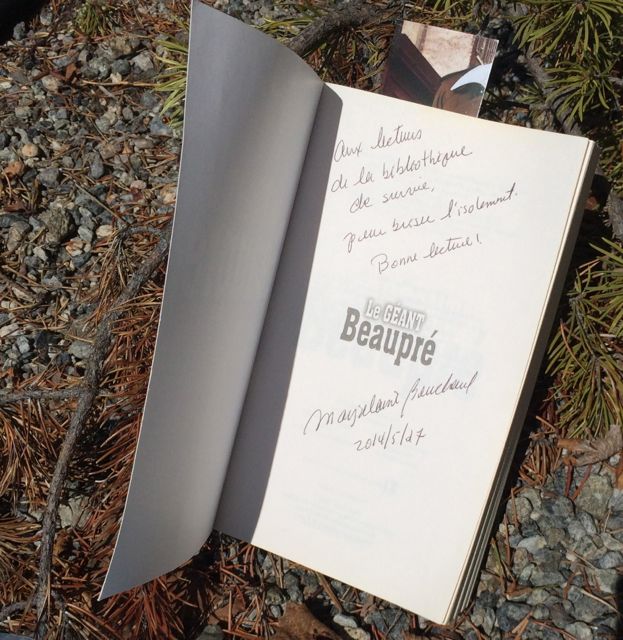 Aux lecteurs
de la bibliothèque
de survie,
pour briser l'isolement.
Bonne lecture!
Le GÉANT
Beaupré
Marjolaine Bouchard
2014/5/27